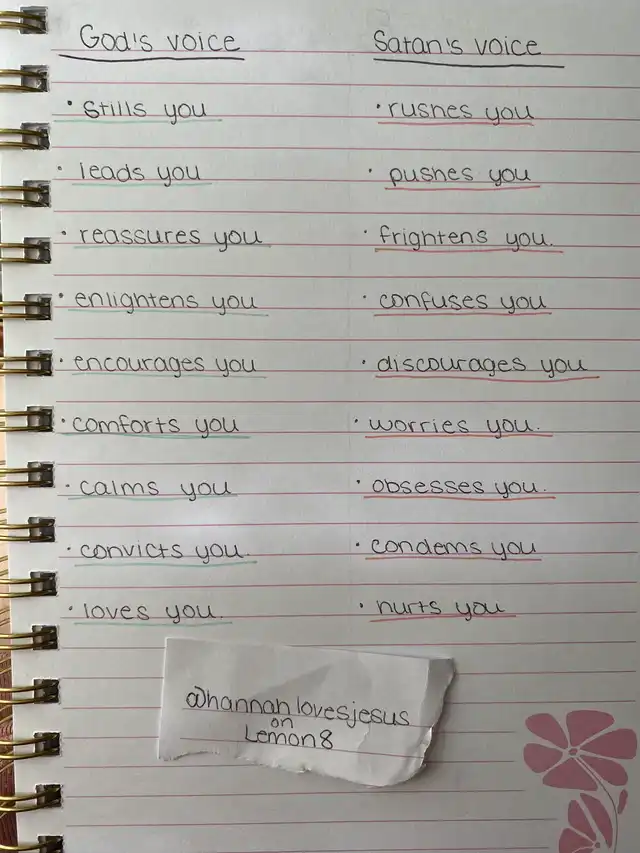 God's voice Satan's voice
• stills you • rushes you
• leads you • pushes you
• reassures you • frightens you.
• enlightens you • confuses you
• encourages you • discourages you
• comforts you • worries you.
• calms you • obsesses you.
• convicts you. • condems you
• loves you. • hurts you
@hannahlovesjesus
on
Lemon8